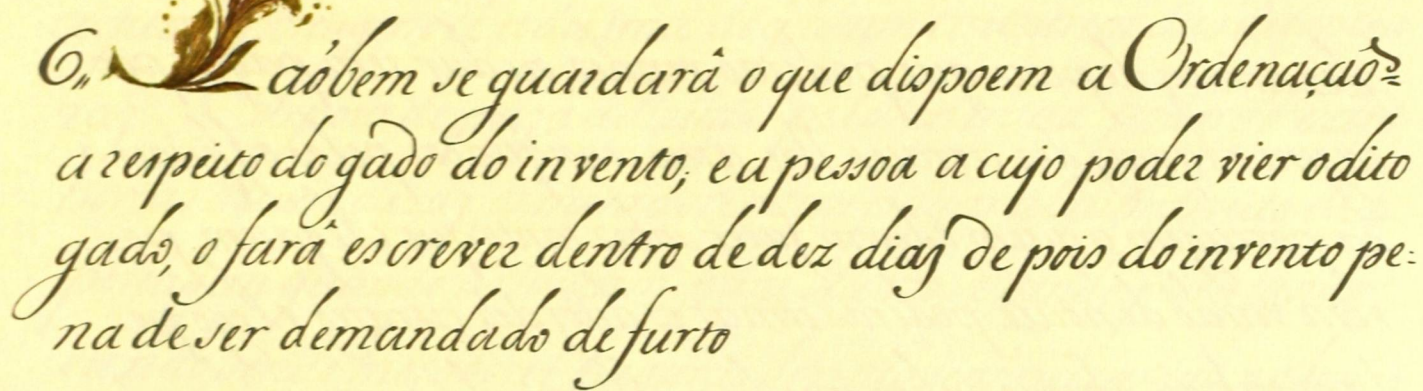 6,, Taóbem se guardarâ o que dispoem a Ordenaçaô=
a respeito do gado do invento; e a pessoa a cujo poder vier o dito
gado, o farâ escrever dentro de dez dias de pois do invento pe:
na de ser demandado de furto